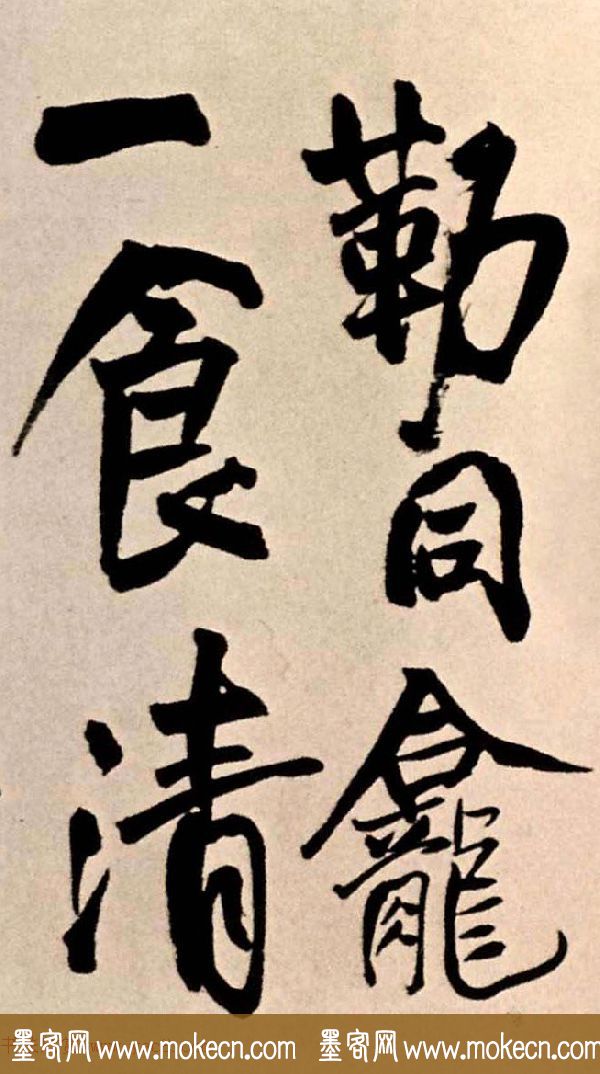 勒同龕
一食清
墨客网 www.mokecn.com 墨客网 www.mokecn.com